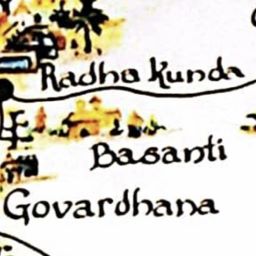 Radha Kunda
Basanti
Govardhana